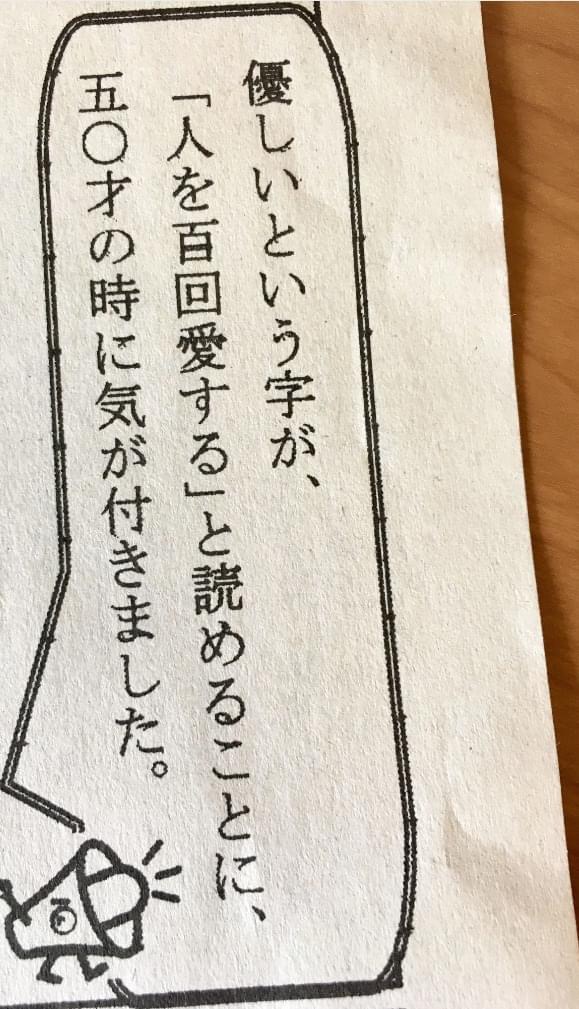 優しいという字が、
「人を百回愛する」と読めることに、
五〇才の時に気が付きました。